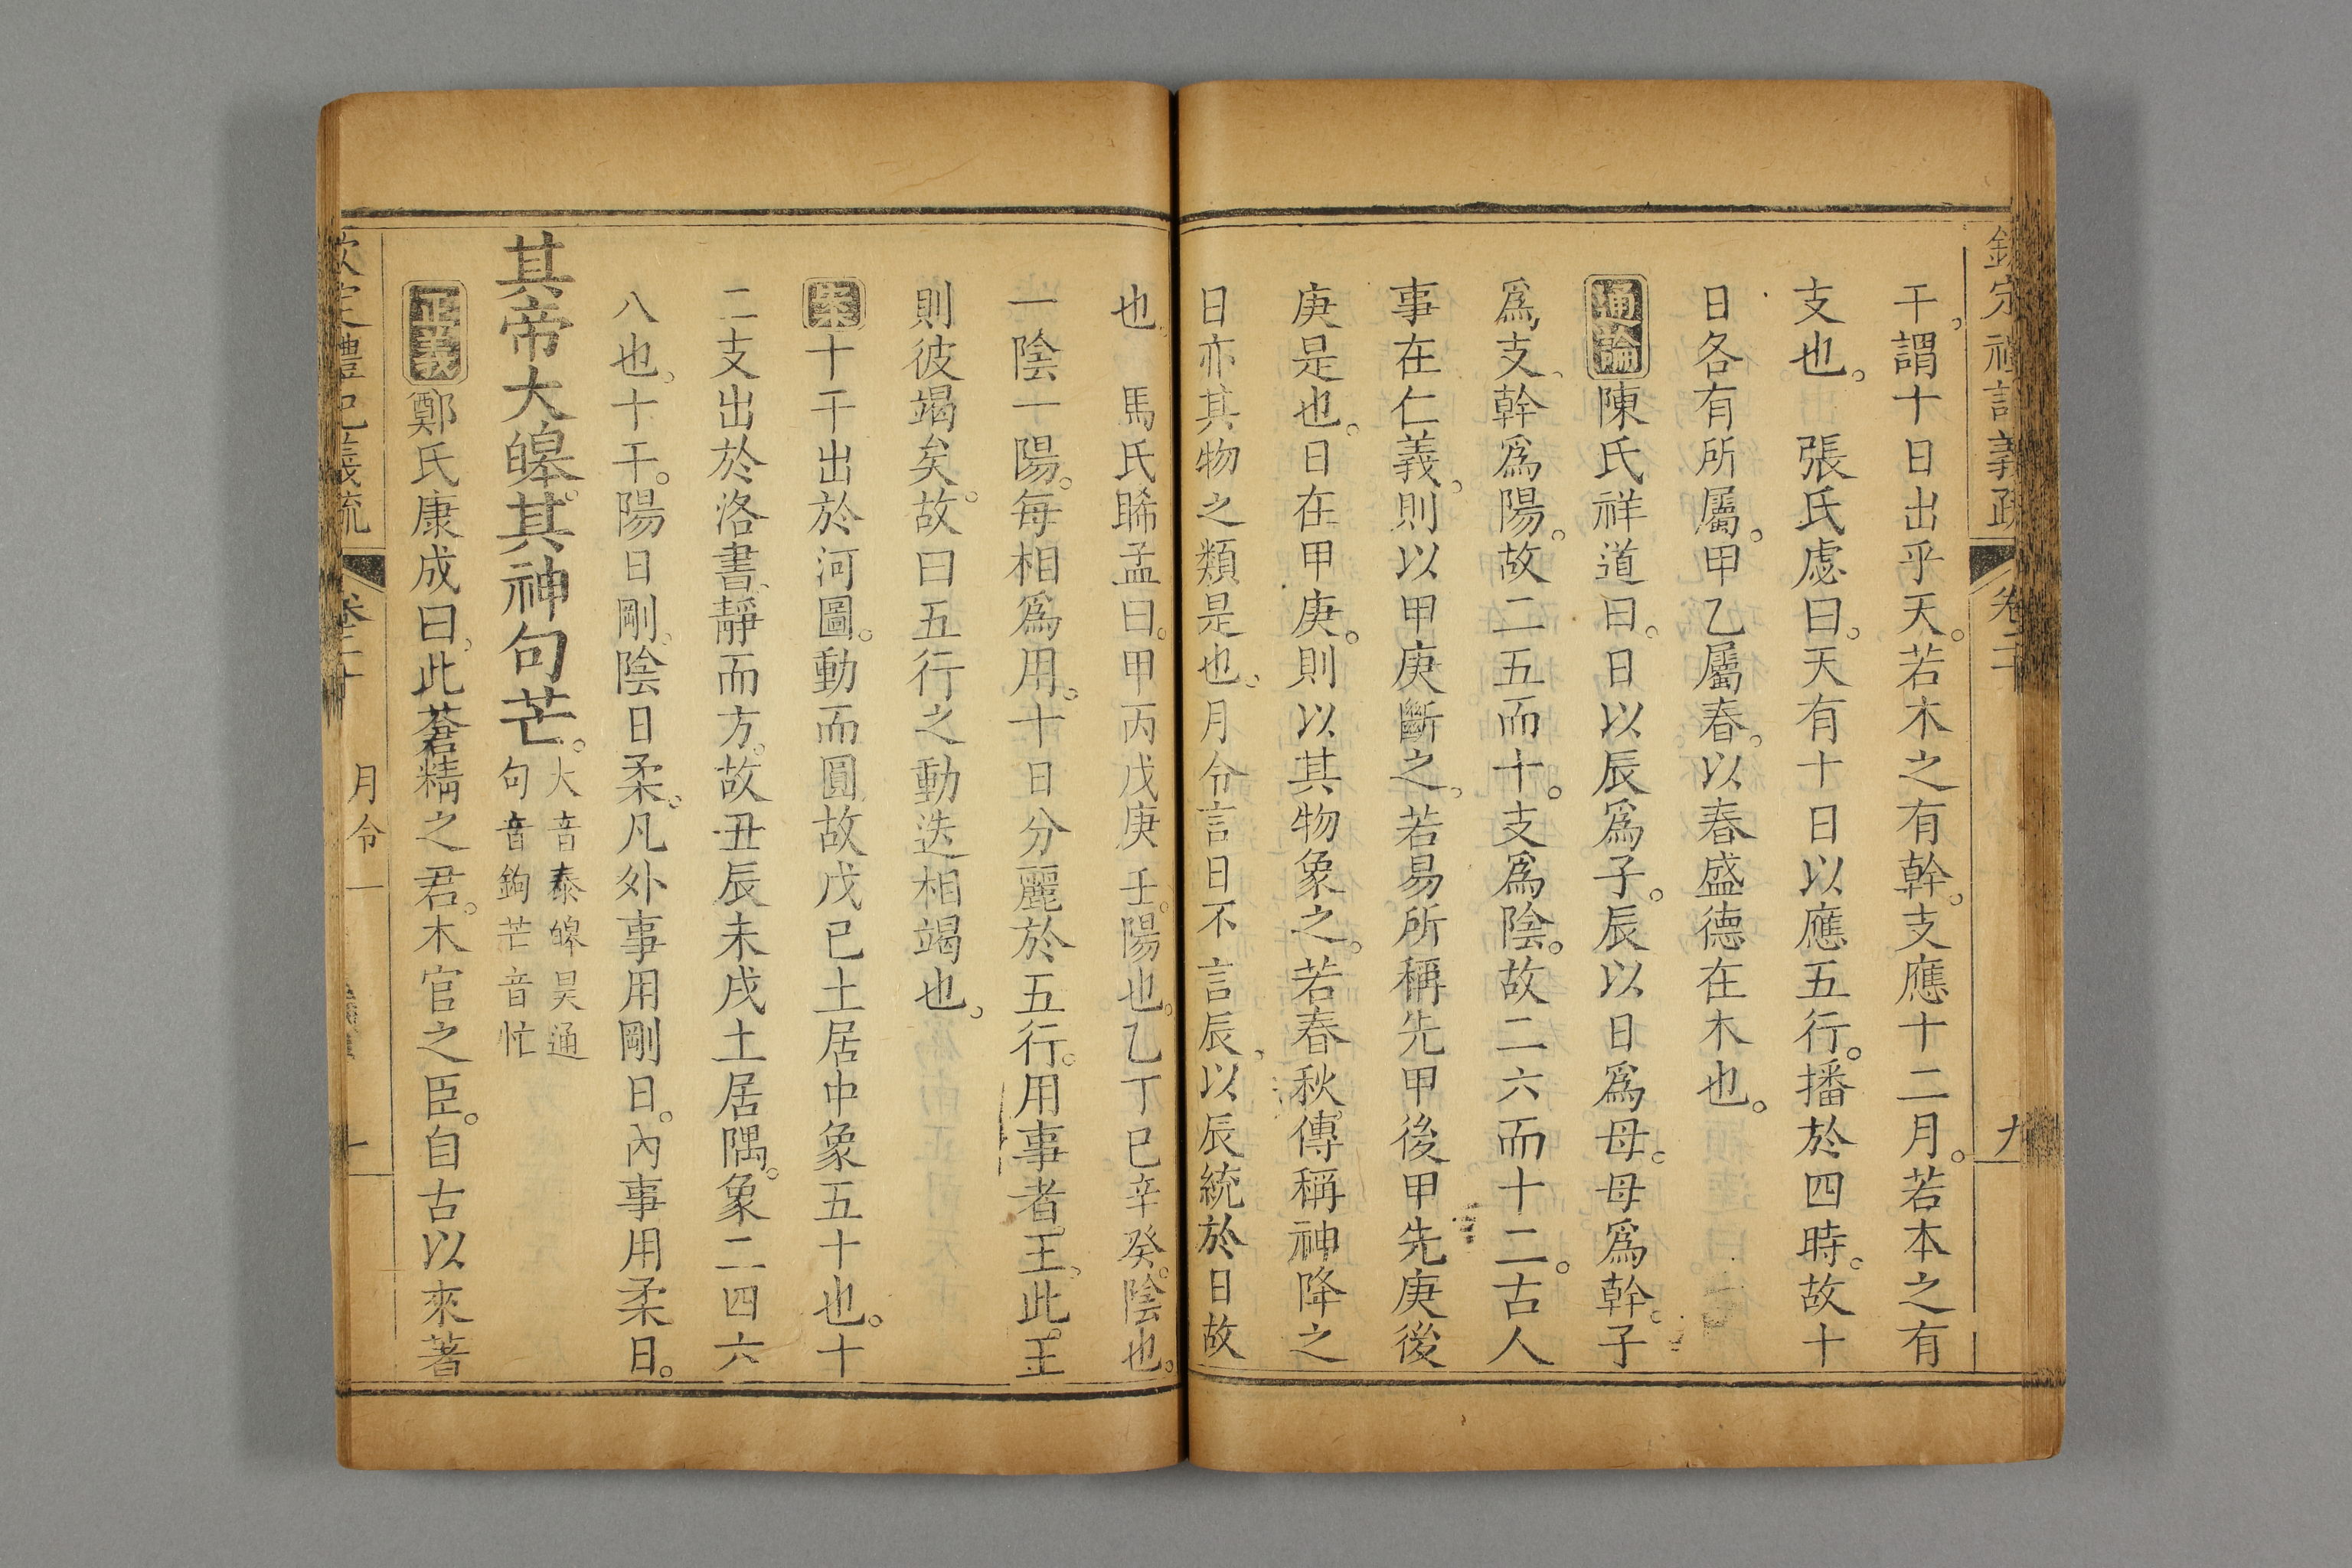 欽定禮記義疏 卷二十 九
干謂十日出乎天。若木之有幹。支應十二月。若本之有
支也。 張氏虙曰。天有十日以應五行。播於四時。故十
日各有所屬。甲乙屬春。以春盛德在木也。
通論 陳氏祥道曰。日以辰爲子。辰以日爲母。母爲幹。子
爲支、幹爲陽。故二五而十。支爲陰。故二六而十二。古人
事在仁義。則以甲庚斷之。若易所稱先甲後甲先庚後
庚是也。日在甲庚。則以其物象之。若春秋傳稱神降之
日亦其物之類是也。月令言日不言辰。以辰統於日故
也。 馬氏睎孟曰。甲丙戊庚壬。陽也。乙丁巳辛癸。陰也。
一陰一陽。每相爲用。十日分麗於五行。用事者王。此王
則彼竭矣。故曰五行之動迭相竭也。
案 十干出於河圖。動而圓故戊巳土居中象五十也。十
二支出於洛書、靜而方。故丑辰未戌土居隅。象二四六
八也。十干。陽日剛、陰日柔。凡外事用剛日。內事用柔日。
其帝大皞。其神句芒。大音泰皞昊通
句音鉤芒音忙
正義 鄭氏康成曰。此蒼精之君。木官之臣。自古以來著
欽定禮記義疏 卷二十 月令一